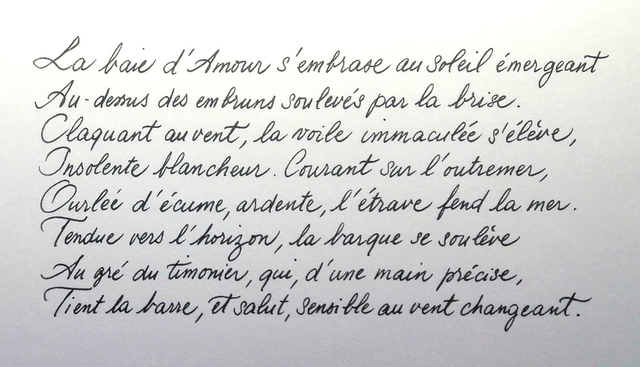 La baie d'Amour s'embrase au soleil émergeant
Au-dessus des embruns soulevés par la brise.
Claquant au vent, la voile immaculée s'élève,
Insolente blancheur. Courant sur l'outremer,
Ourlée d'écume, ardente, l'étrave fend la mer.
Tendue vers l'horizon, la barque se soulève
Au gré du timonier, qui, d'une main précise,
Tient la barre, et salut, sensible au vent changeant.